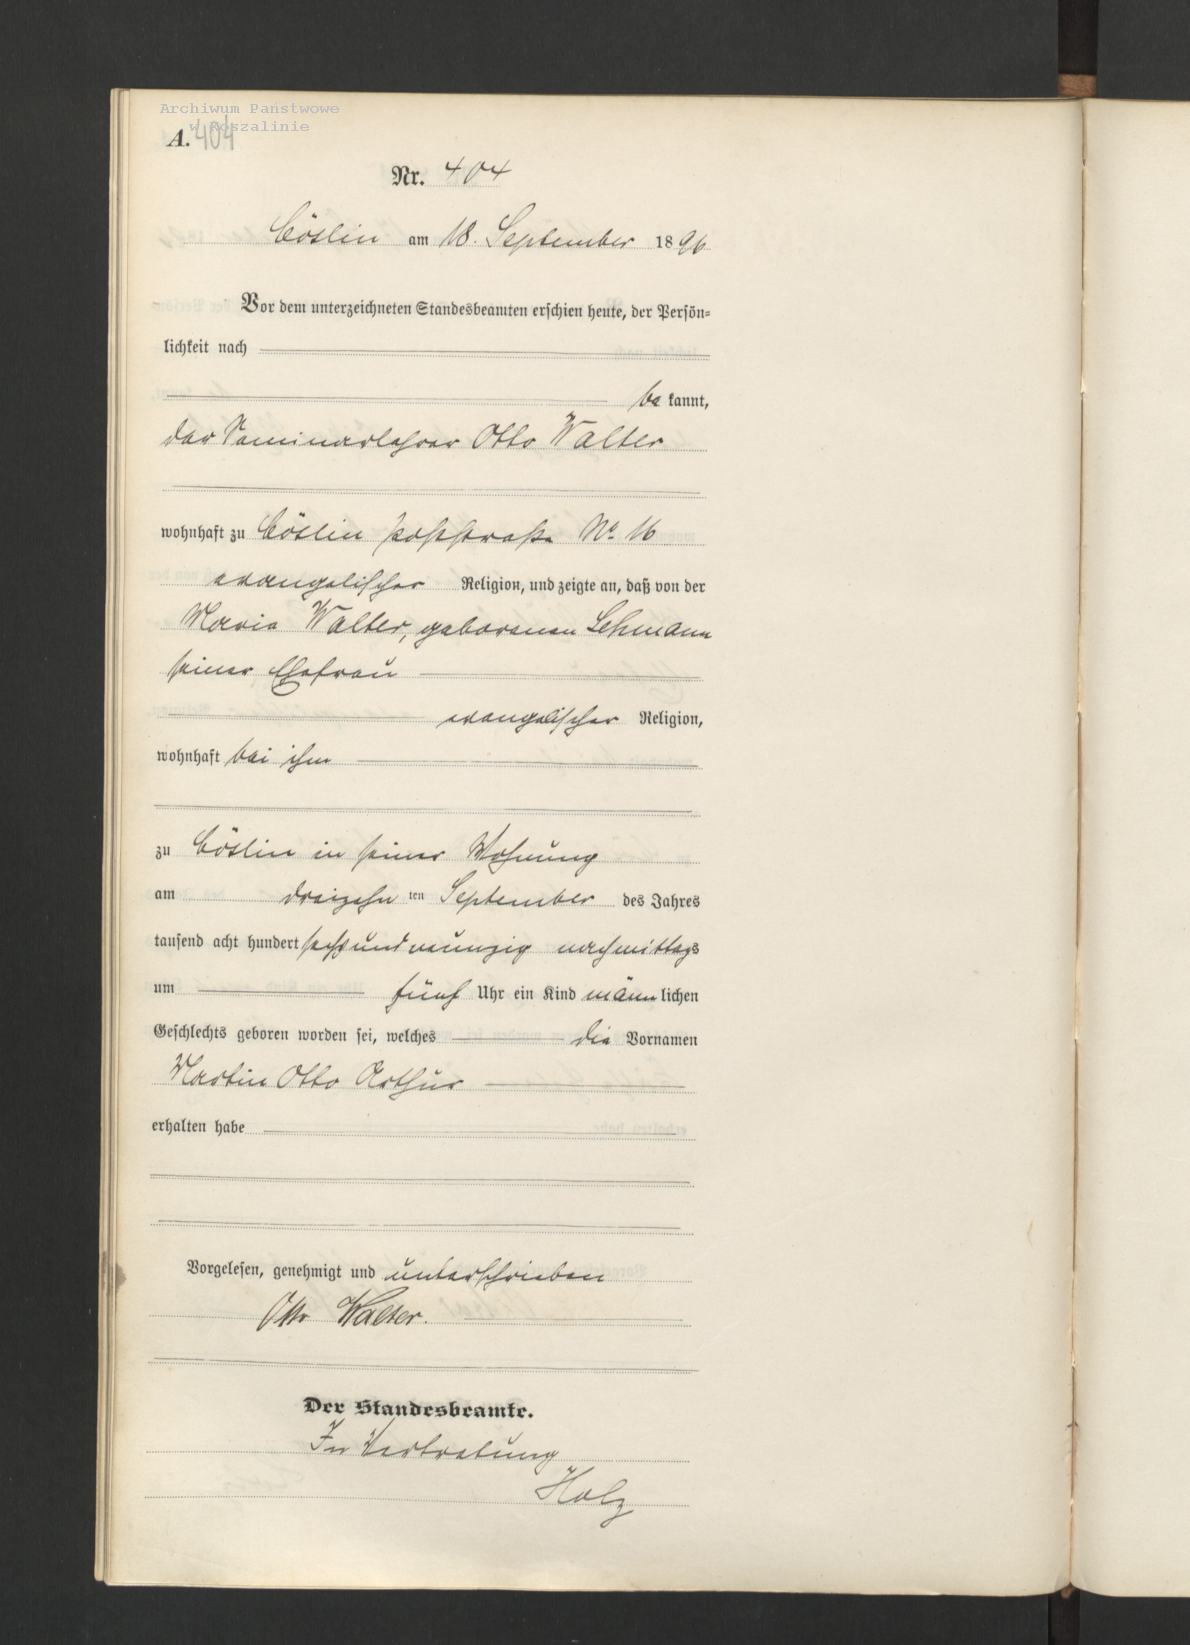 Archiwum Państwowe
w Koszalinie
A. 404
Nr. 404
Cöslin am 18. September 1896
Vor dem unterzeichneten Standesbeamten erschien heute, der Persön-
lichkeit nach
be kannt,
der Seminarlehrer Otto Walter
wohnhaft zu Cöslin Poststraße No 16
evangelischer Religion, und zeigte an, daß von der
Maria Walter, geborenen Lehmann
seiner Ehefrau
evangelischer Religion,
wohnhaft bei ihm
zu Cöslin in seiner Wohnung
am dreizehn ten September des Jahres
tausend acht hundert sechsundneunzig nachmittags
um fünf Uhr ein Kind männlichen
Geschlechts geboren worden sei, welches die Vornamen
Martin Otto Arthur
erhalten habe
Vorgelesen, genehmigt und unterschrieben
Otto Walter.
Der Standesbeamte.
In Vertretung
Holz